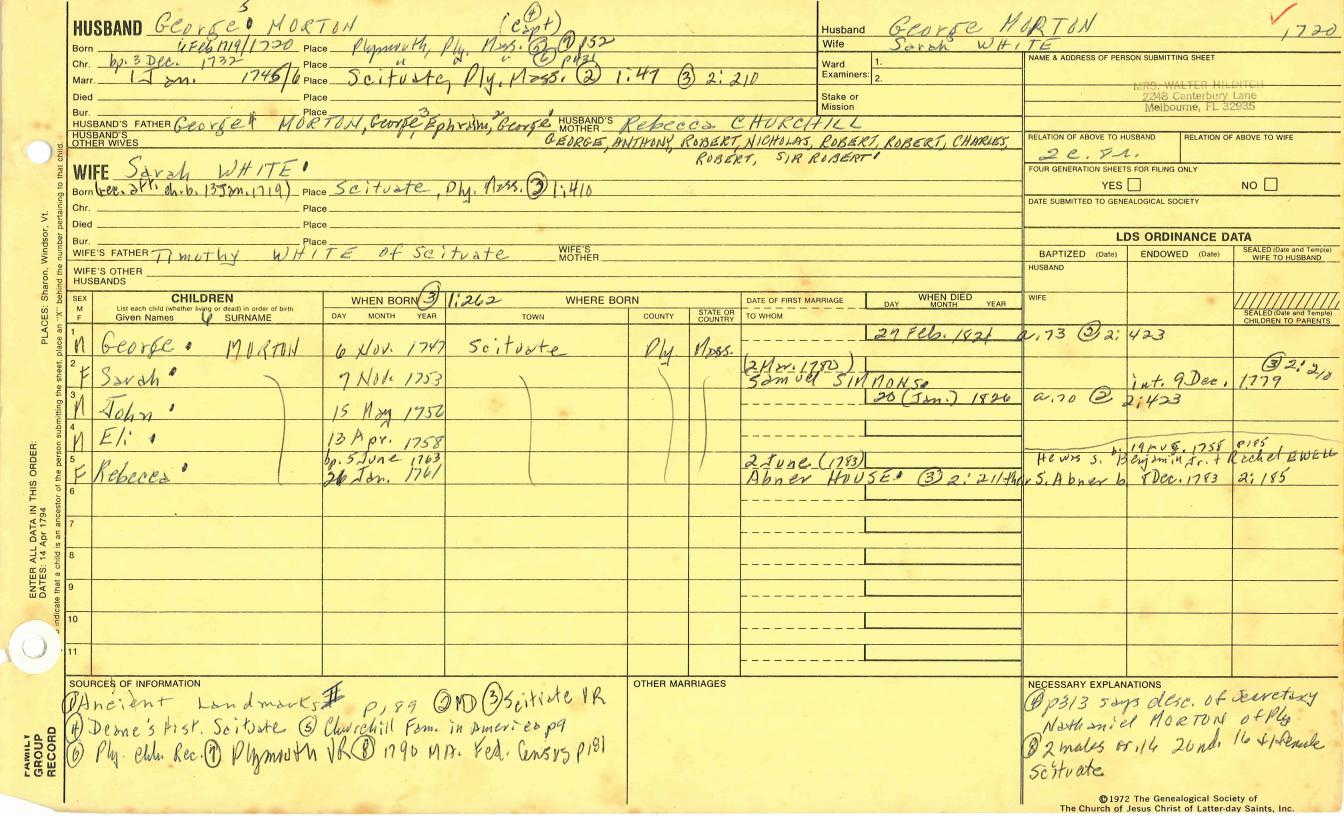 HUSBAND George 5 MORTON (Capt) ④
Born 4 Feb 1719/1720 Place Plymouth, Ply. Mass. ⑤ ⑦ p52
Chr. bp. 3 Dec. 1732 Place " " " ⑥
Marr. 1 Jan. 1745/6 Place Scituate, Ply. Mass. ② 1:47 ③ 2:210
Died Place
Bur. Place
HUSBAND'S FATHER George 4 MORTON, George 3 Ephraim 2 George 1 HUSBAND'S MOTHER Rebecca CHURCHILL
HUSBAND'S OTHER WIVES GEORGE, ANTHONY, ROBERT, NICHOLAS, ROBERT, ROBERT, CHARLES,
ROBERT, SIR ROBERT
WIFE Sarah WHITE
Born (ch. b. 13 Jan. 1719) Place Scituate, Ply. Mass. ③ 1:410
Chr. Place
Died Place
Bur. Place
WIFE'S FATHER Timothy WHITE of Scituate WIFE'S MOTHER
WIFE'S OTHER HUSBANDS
Husband George MORTON 1720
Wife Sarah WHITE
Ward Examiners: 1.
2.
Stake or Mission
NAME & ADDRESS OF PERSON SUBMITTING SHEET
MRS. WALTER HILDITCH
2248 Canterbury Lane
Melbourne, FL 32935
RELATION OF ABOVE TO HUSBAND RELATION OF ABOVE TO WIFE
FOUR GENERATION SHEETS FOR FILING ONLY
YES NO
DATE SUBMITTED TO GENEALOGICAL SOCIETY
LDS ORDINANCE DATA
BAPTIZED (Date) ENDOWED (Date) SEALED (Date and Temple) WIFE TO HUSBAND
HUSBAND
WIFE
SEALED (Date and Temple) CHILDREN TO PARENTS
SEX M F CHILDREN WHEN BORN ③ 1:262 WHERE BORN DATE OF FIRST MARRIAGE WHEN DIED
List each child (whether living or dead) in order of birth
Given Names SURNAME DAY MONTH YEAR TOWN COUNTY STATE OR COUNTRY TO WHOM DAY MONTH YEAR
1 M George MORTON 6 Nov. 1747 Scituate Ply Mass. 27 Feb. 1821 a.73 ② 2:423
2 F Sarah 7 Nov. 1753 (2 Mar. 1780) Samuel SIMMONS int. 9 Dec. 1779 ③ 2:210
3 M John 15 May 1756 20 (Jan.) 1826 a.70 ② 2:423
4 M Eli 13 Apr. 1758
5 F Rebecca bp. 5 June 1763 26 Jan. 1761 2 June (1783) Abner HOUSE ③ 2:211
He was s. Benjamin Jr. + Rachel EWELL b. 19 Aug. 1758 p185
their s. Abner b. 8 Dec. 1783 2:185
6
7
8
9
10
11
SOURCES OF INFORMATION
① Ancient Landmarks II p189 ② MD ③ Scituate VR
④ Deane's Hist. Scituate ⑤ Churchill Fam. in America p9
⑥ Ply. chh. Rec. ⑦ Plymouth VR ⑧ 1790 MA. Fed. Census p181
OTHER MARRIAGES
NECESSARY EXPLANATIONS
④ p313 says desc. of Secretary
Nathaniel MORTON of Ply
⑧ 2 males ov. 16 2 und. 16 + 1 female
Scituate
©1972 The Genealogical Society of
The Church of Jesus Christ of Latter-day Saints, Inc.
FAMILY GROUP RECORD
ENTER ALL DATA IN THIS ORDER:
DATES: 14 Apr 1794
PLACES: Sharon, Windsor, Vt.
indicate that a child is an ancestor of the person submitting the sheet, place an "X" behind the number pertaining to that child.